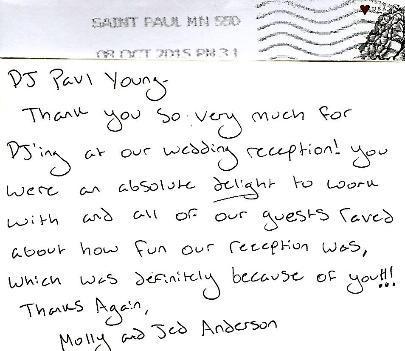 SAINT PAUL MN 550
08 OCT 2015 PM 3 1
DJ Paul Young-
Thank you so very much for
DJ'ing at our wedding reception! You
were an absolute delight to work
with and all of our guests raved
about how fun our reception was,
which was definitely because of you!!!
Thanks Again,
Molly and Jed Anderson